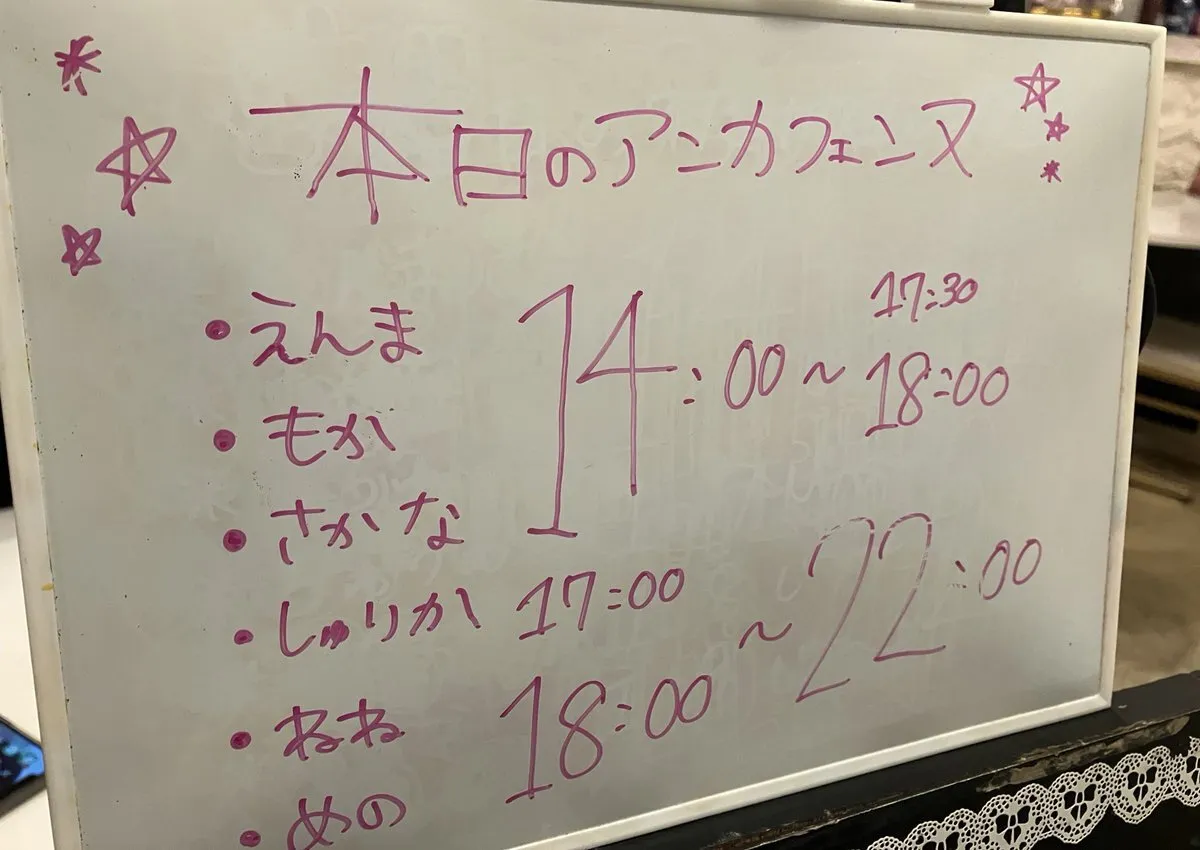 本日のアンカフェンヌ
17:30
・えんま 14:00～18:00
・もか
・さかな
・しゅりか 17:00
～22:00
・ねね 18:00
・めの